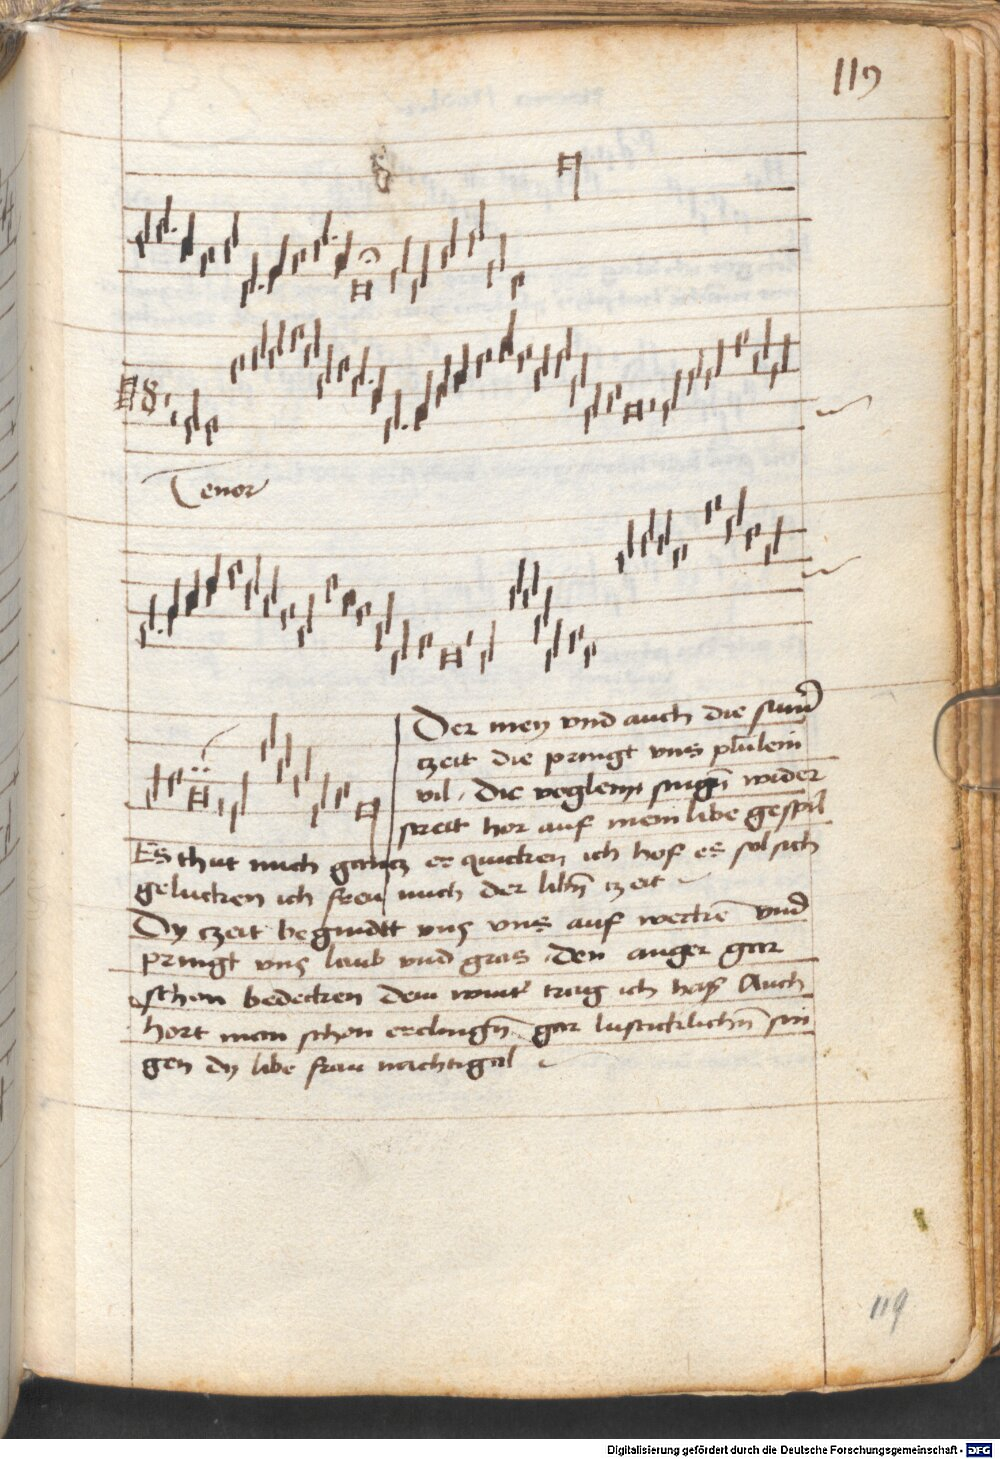 119
Tenor
Der mey vnd auch die sum̄
czeit die pringt vns plu͞lein
vil. Die voglenn singn̄ wider
streit hor auf mein libe gespil
Es thut mich gantz er quicken ich hof es sol sich
gelucken ich freu mich der libn̄ czeit
Dy czeit begindtt vns vns auf wecke͞ vnd
pringt vns laub vnd gras. den anger gar
schon bedecken dem wint' trag ich has Auch
hort man schon erclingn̄ gar lusticklichn̄ sin
gen dy libe frau nachtigal
119
Digitalisierung gefördert durch die Deutsche Forschungsgemeinschaft - DFG